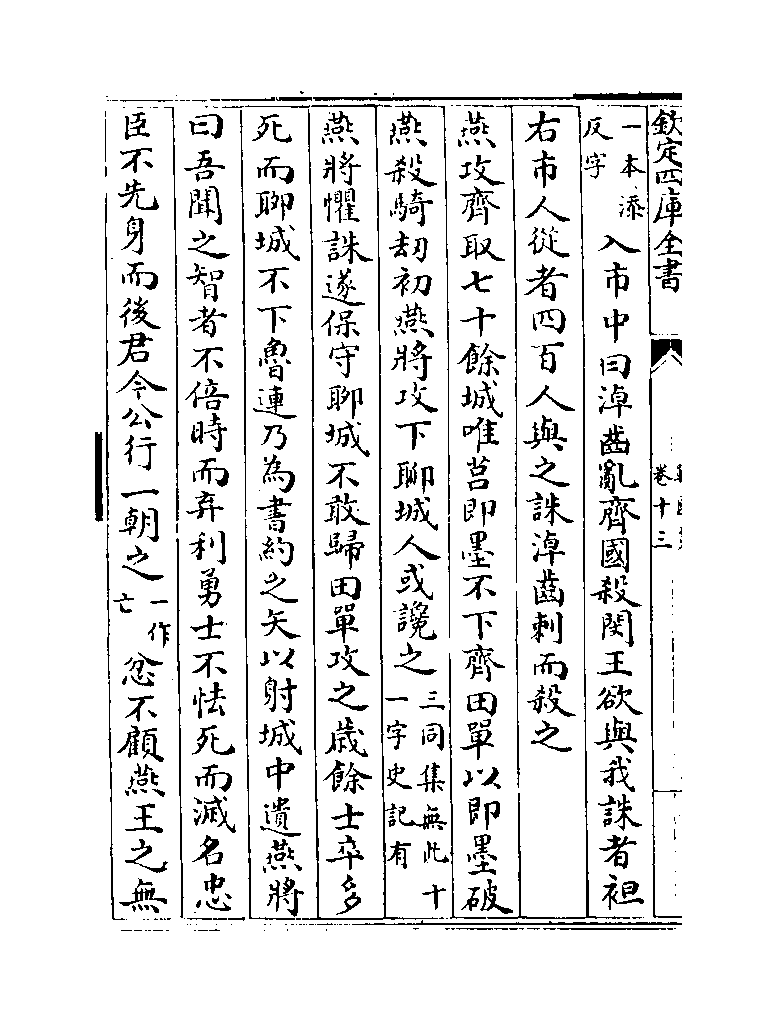 欽定四庫全書
卷十三
一本添反字入市中曰淖齒亂齊國殺閔王欲與我誅者袒
右市人從者四百人與之誅淖齒刺而殺之
燕攻齊取七十餘城唯莒即墨不下齊田單以即墨破
燕殺騎刧初燕將攻下聊城人或讒之三同集無此十一字史記有
燕將懼誅遂保守聊城不敢歸田單攻之歳餘士卒多
死而聊城不下魯連乃為書約之矢以射城中遺燕將
曰吾聞之智者不倍時而弃利勇士不怯死而滅名忠
臣不先身而後君今公行一朝之一作亡忿不顧燕王之無